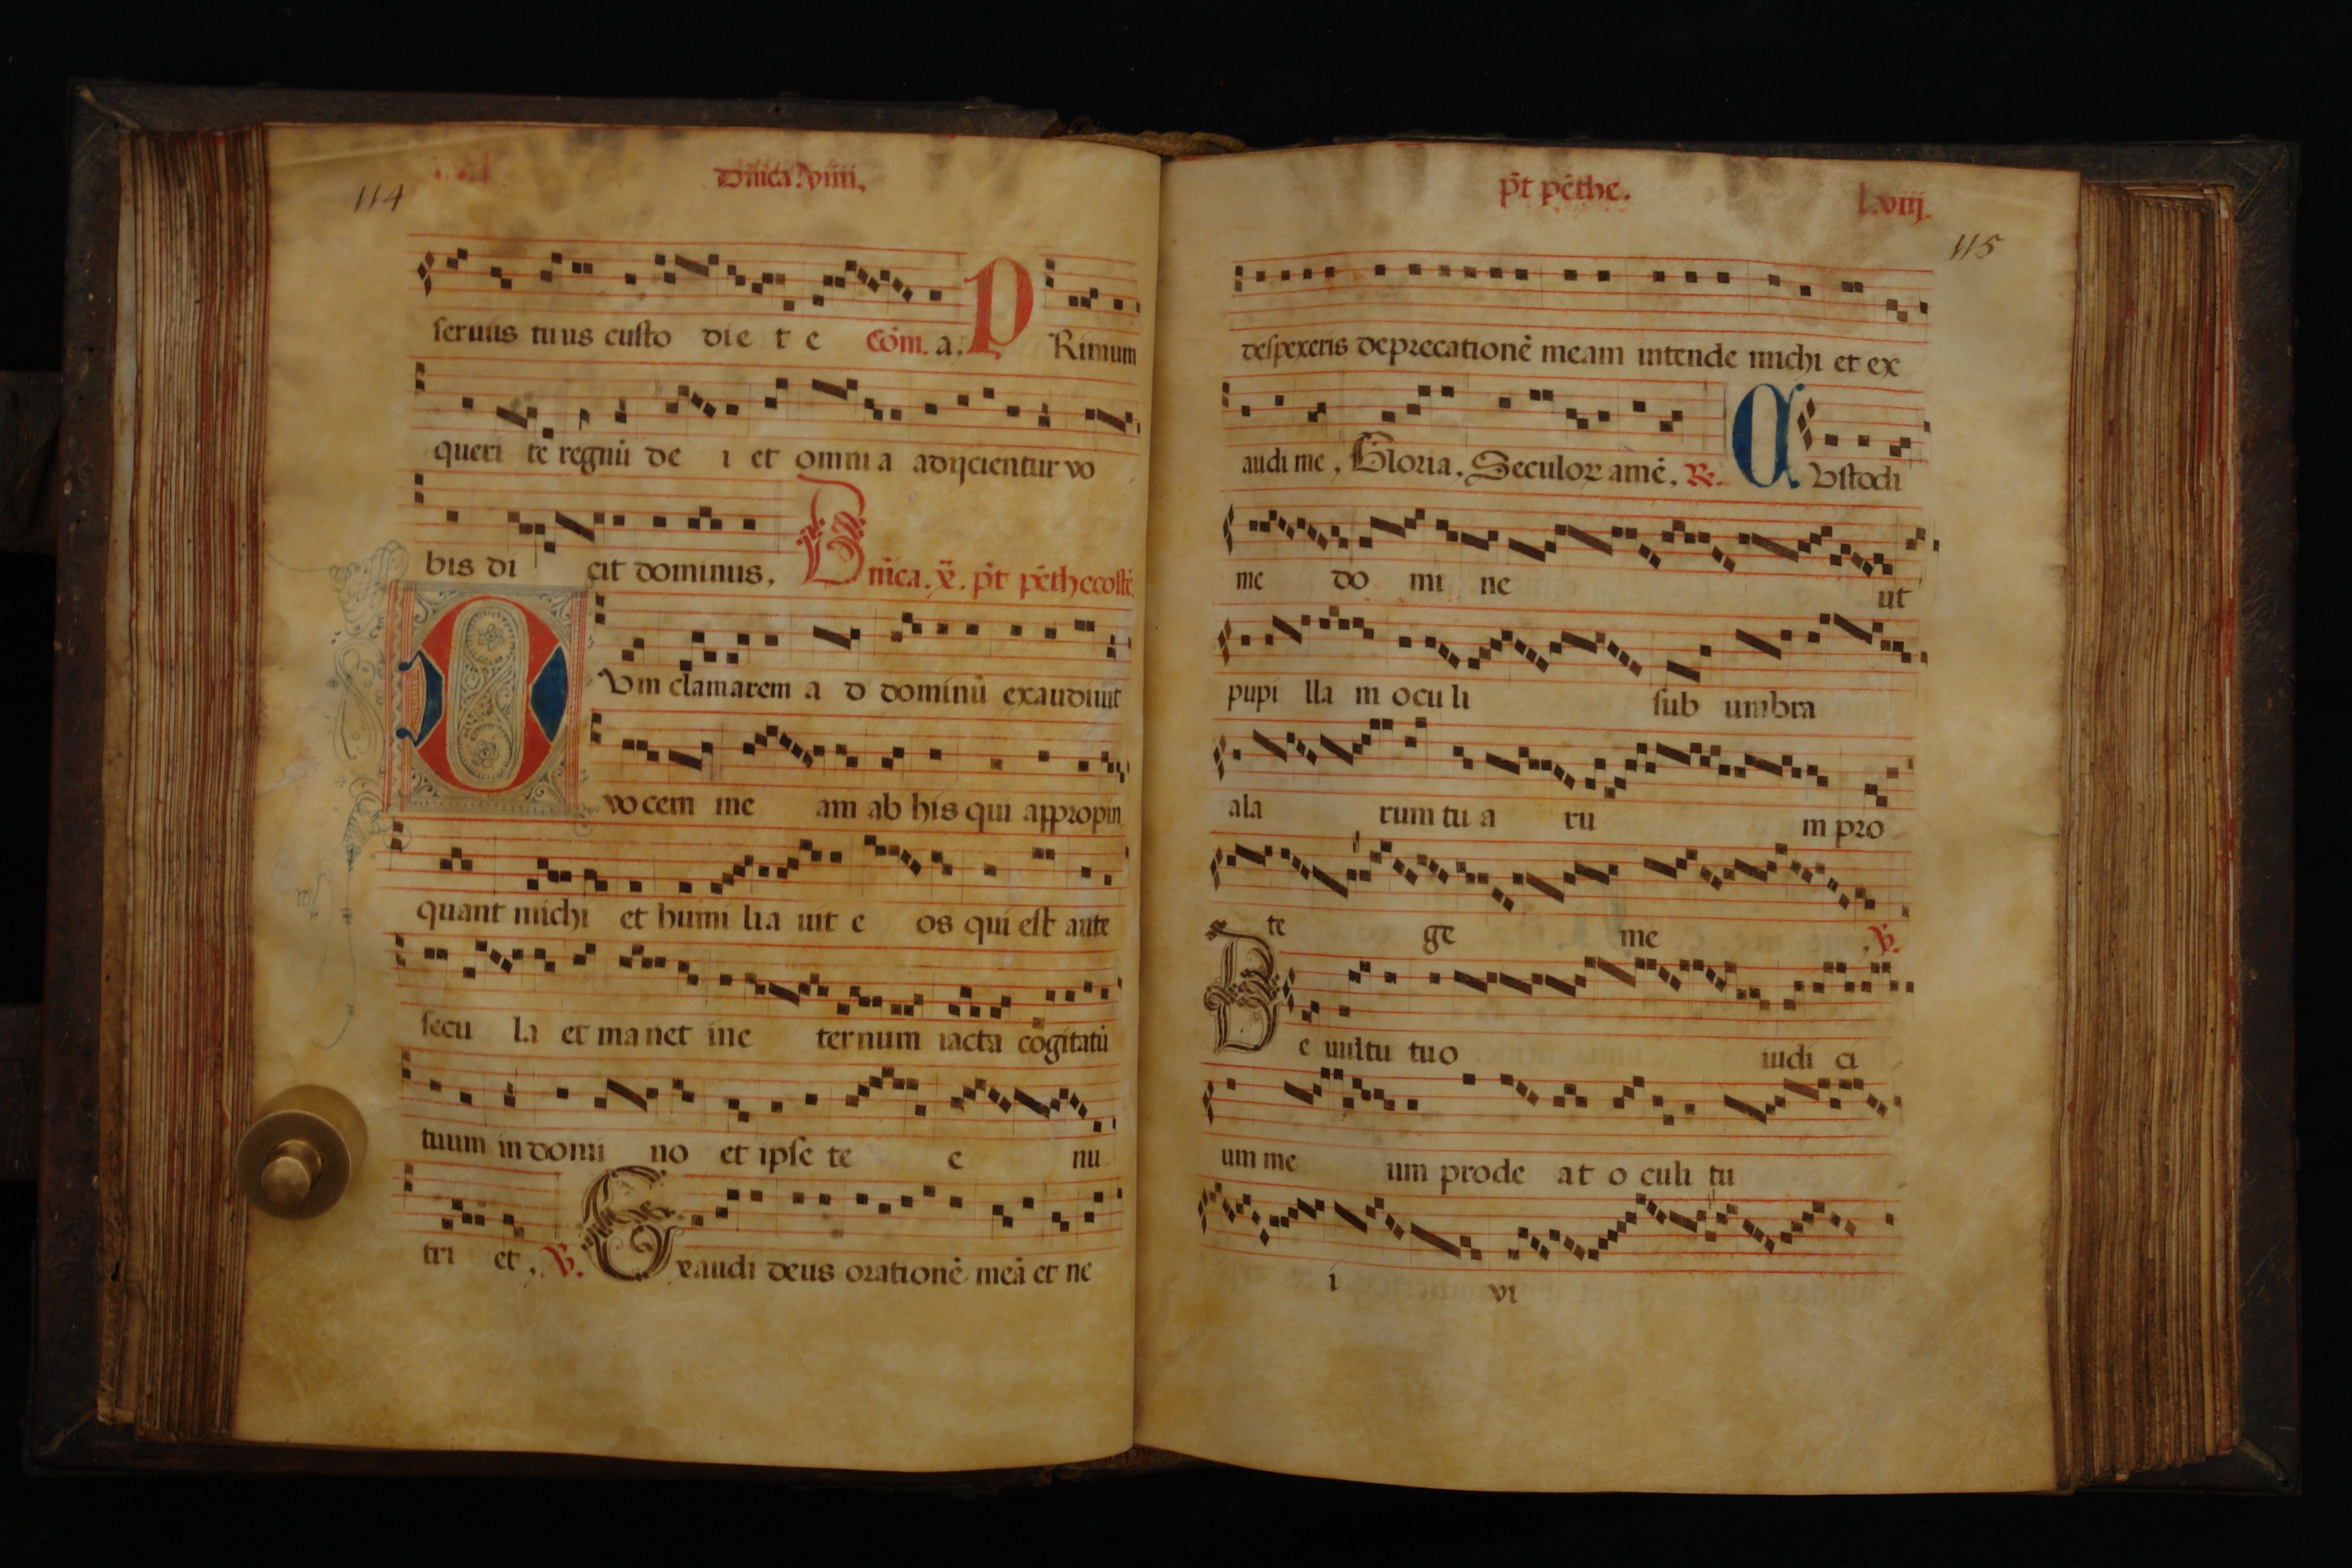 114
Dñica. viiii,
seruus tuus custo die t e Cóm. a. PRimum
queri te regnũ de i et omnia adijcientur vo
bis di cit dominus, Dnica. x. p̃t pẽthecostẽ,
Vm clamarem a d dominũ exaudiuit
vocem me am ab his qui appropin
quant michi et humi lia uit e os qui est ante
secu la et manet ine ternum iacta cogitatũ
tuum in domi no et ipse te e nu
tri et, V. Exaudi deus orationẽ meã et ne
p̃t pẽthe.
l.viij.
115
despexeris deprecationẽ meam intende michi et ex
audi me, Gloria, Seculoꝝ amẽ, R. CVstodi
me do mi ne ut
pupi lla m ocu li sub umbra
ala rum tu a ru m pro
te ge me, V.
De uultu tuo iudi ci
um me um prode at o culi tu
i vi